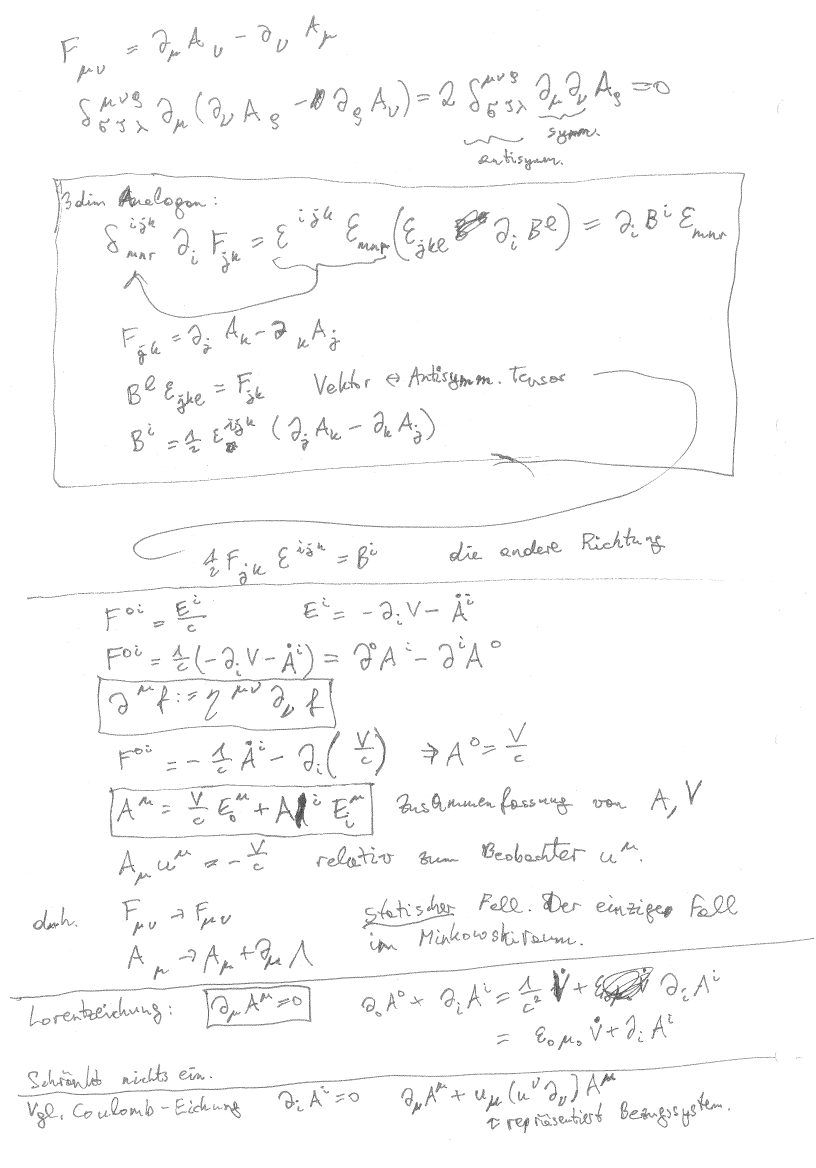 F_{μν} = ∂_μ A_ν − ∂_ν A_μ
δ^{μνρ}_{στλ} ∂_μ (∂_ν A_ρ − ∂_ρ A_ν) = 2 δ^{μνρ}_{στλ} ∂_μ ∂_ν A_ρ = 0
symm.
antisymm.
3dim Analogon:
δ^{ijk}_{mnr} ∂_i F_{jk} = ε^{ijk} ε_{mnr} (ε_{jkl} ∂_i B^l) = ∂_i B^i ε_{mnr}
F_{jk} = ∂_j A_k − ∂_k A_j
B^l ε_{jkl} = F_{jk} Vektor ↔ Antisymm. Tensor
B^i = 1/2 ε^{ijk} (∂_j A_k − ∂_k A_j)
1/2 F_{jk} ε^{ijk} = B^i die andere Richtung
F^{0i} = E^i/c E^i = −∂_i V − Ȧ^i
F^{0i} = 1/c (−∂_i V − Ȧ^i) = ∂^0 A^i − ∂^i A^0
∂^μ f := η^{μν} ∂_ν f
F^{0i} = − 1/c Ȧ^i − ∂_i (V/c) ⇒ A^0 = V/c
A^μ = V/c E_0^μ + A^i E_i^μ Zusammenfassung von A, V
A_μ u^μ = − V/c relativ zum Beobachter u^μ.
d.h. F_{μν} → F_{μν} statischer Fall. Der einzige Fall
A_μ → A_μ + ∂_μ Λ im Minkowskiraum.
Lorentzeichung: ∂_μ A^μ = 0 ∂_0 A^0 + ∂_i A^i = 1/c² V̇ + ∂_i A^i
= ε_0 μ_0 V̇ + ∂_i A^i
Schränkt nichts ein.
Vgl. Coulomb-Eichung ∂_i A^i = 0 ∂_μ A^μ + u_μ (u^ν ∂_ν) A^μ
↑ repräsentiert Bezugssystem.